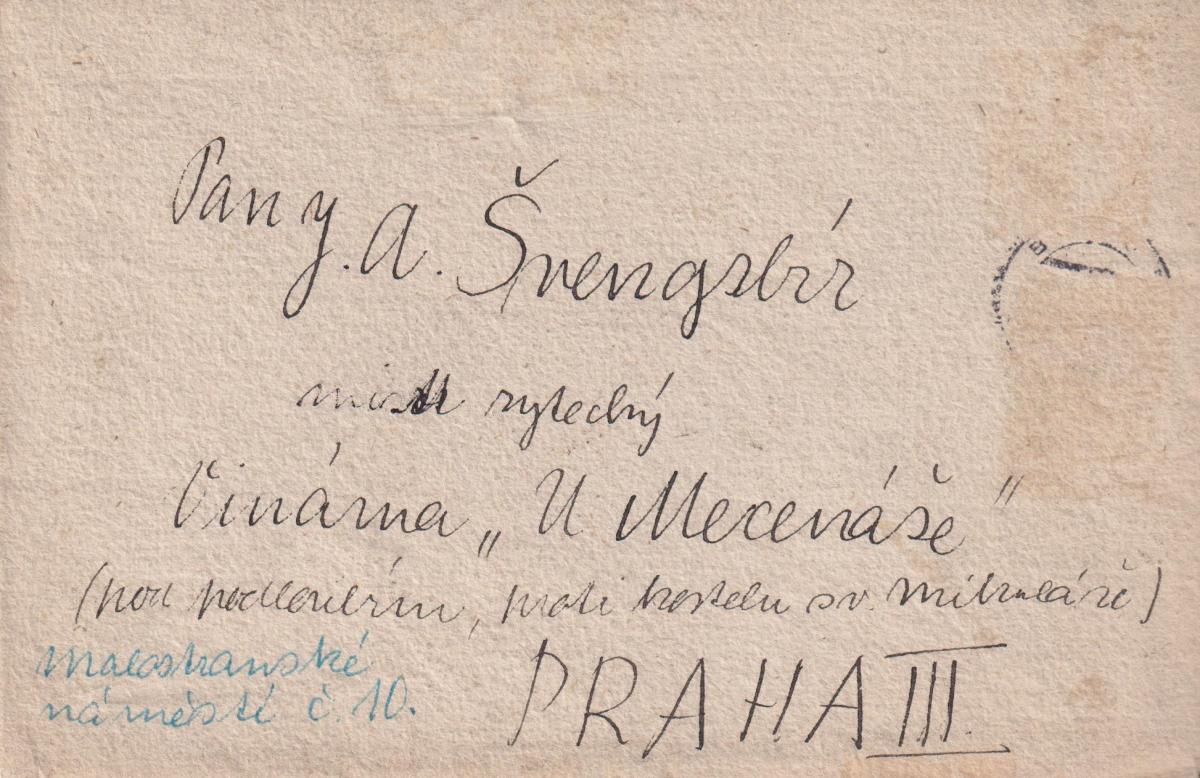 Pan J. A. Švengsbír
mistr rytecký
Vinárna „U Mecenáše"
(pod podloubím, proti kostelu sv. Mikuláše)
Malostranské
náměstí č. 10.
PRAHA III.